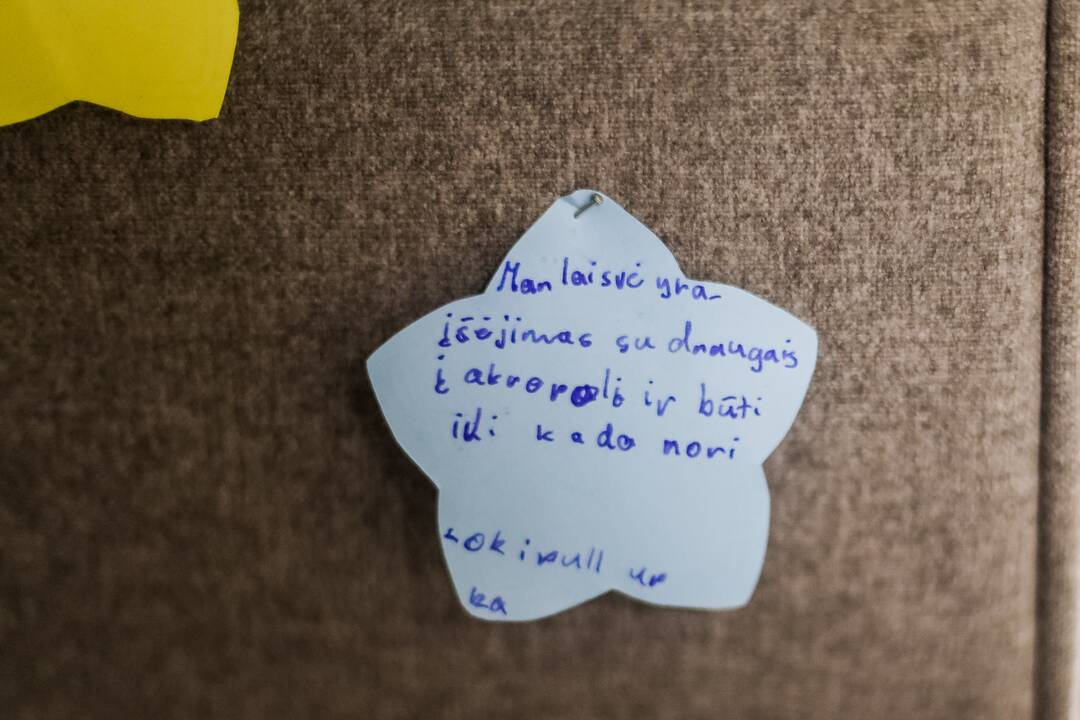 Man laisvė yra-
įšėjimas su draugais
į akropolį ir būti
iki kada nori
ipull up
ka